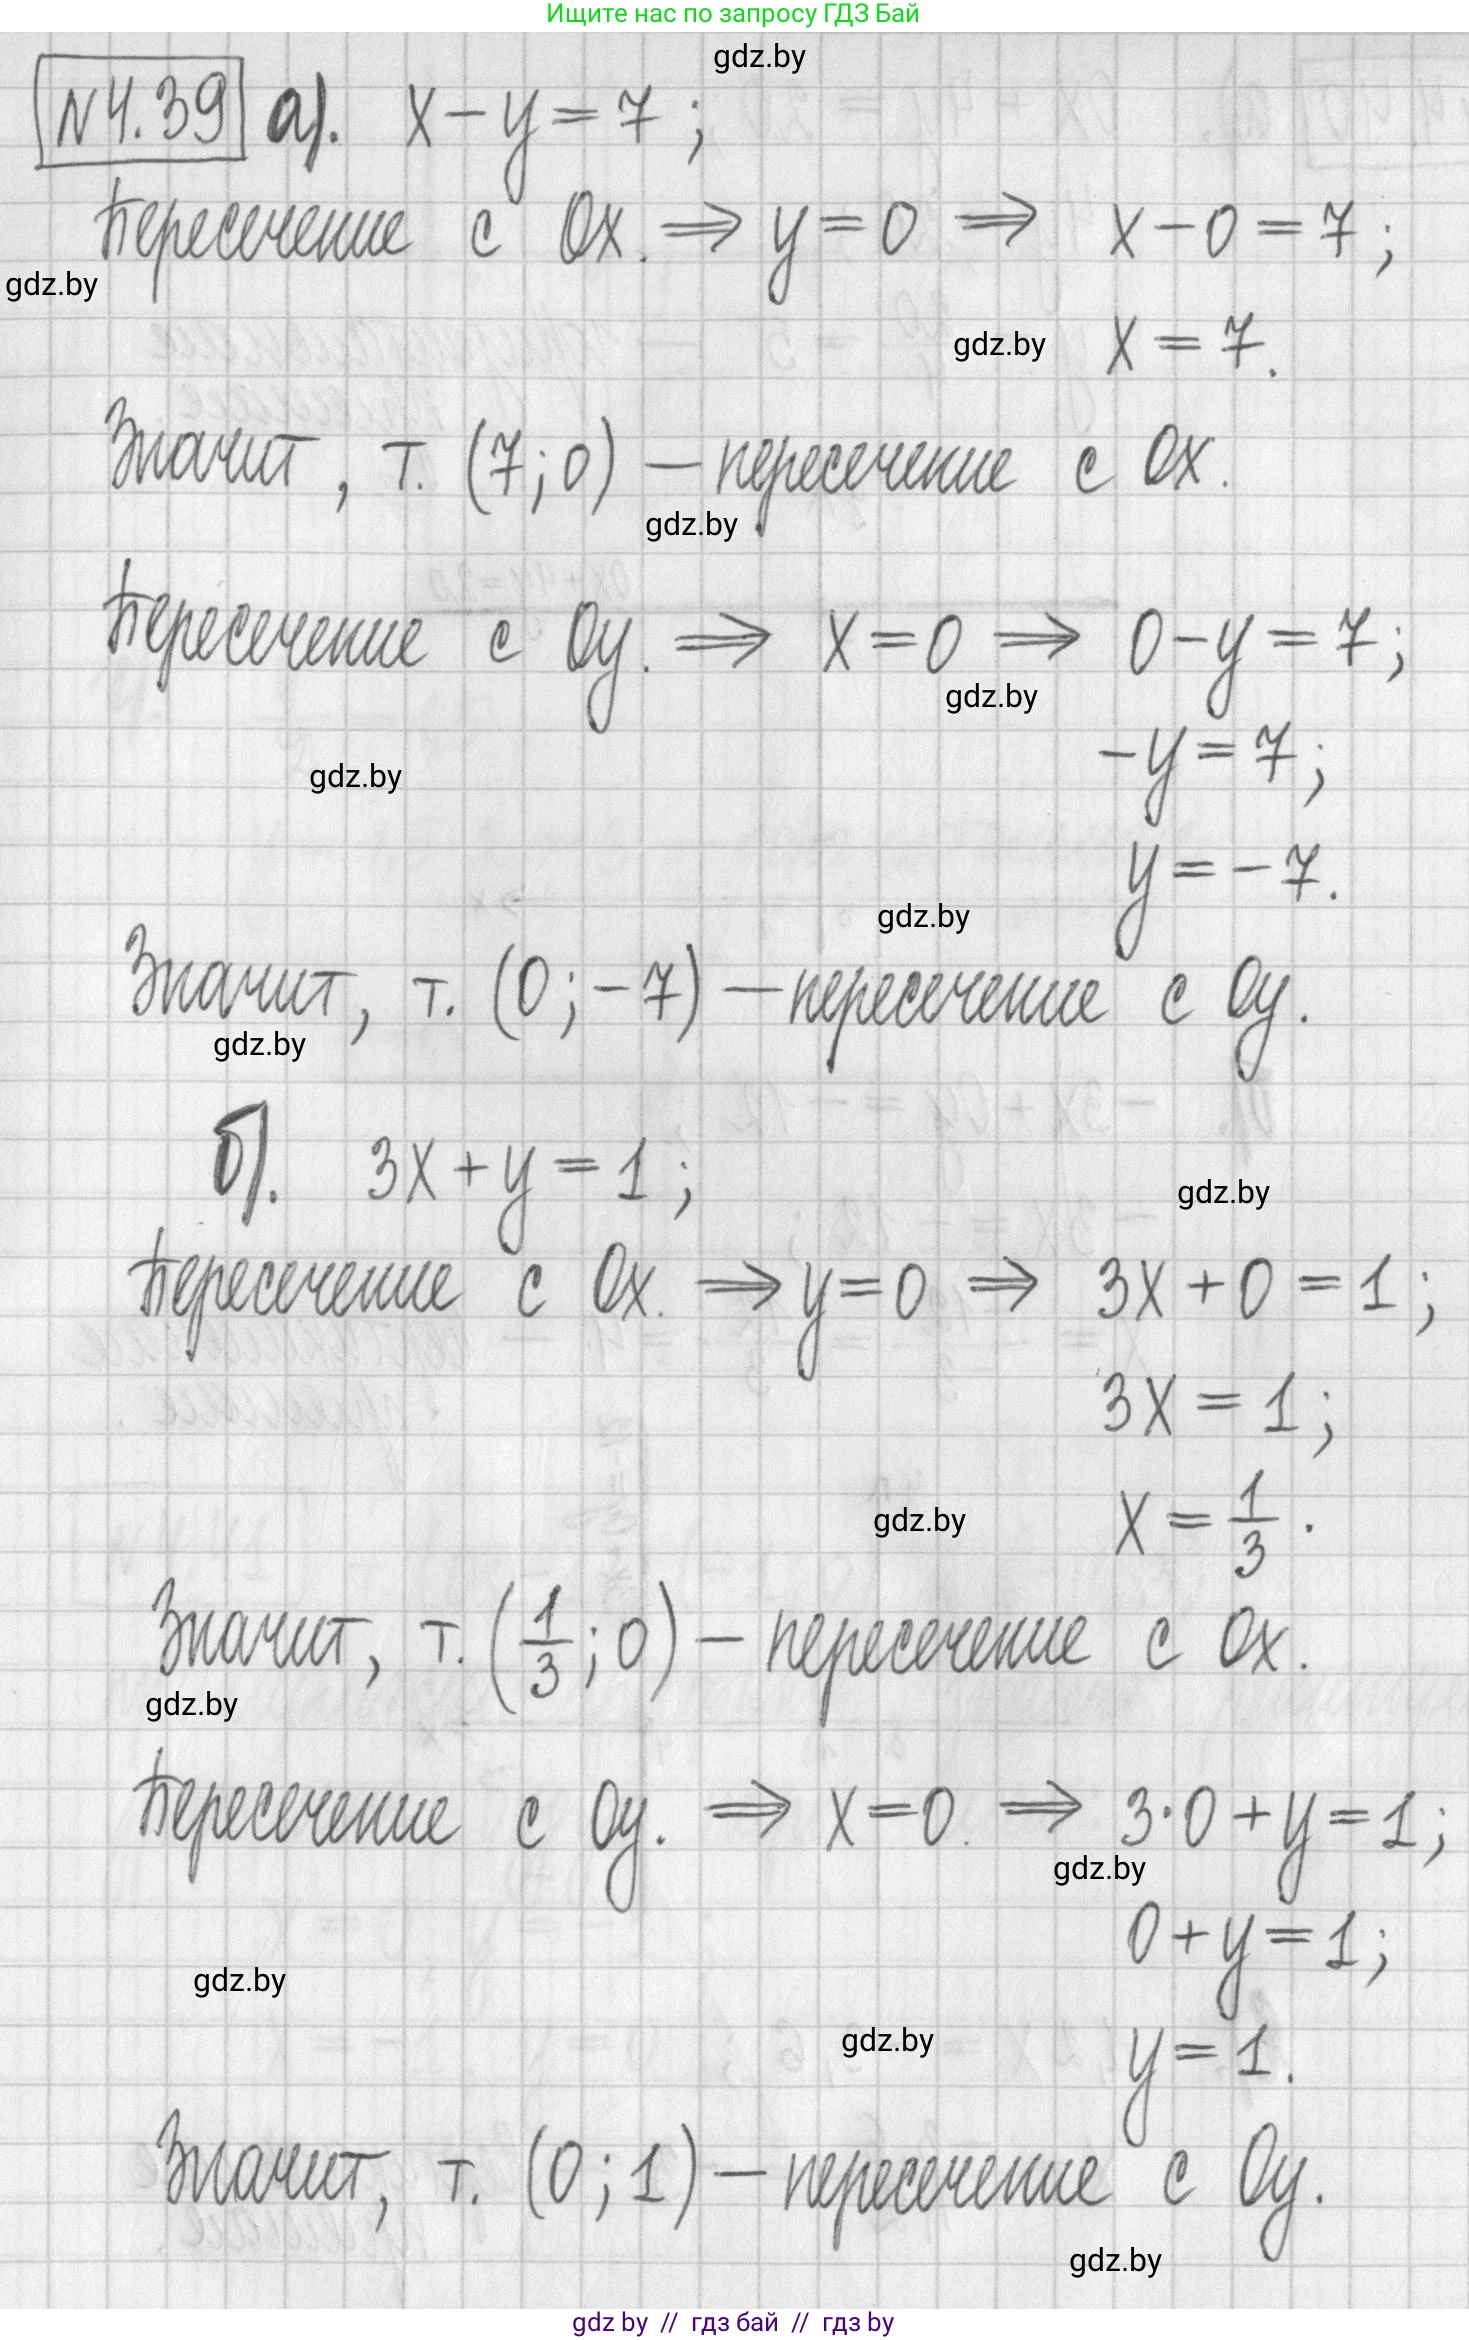 Ищите нас по запросу ГДЗ Бай
gdz.by
№4.39 а). x - y = 7 ;
Пересечение с Ox. ⇒ y = 0 ⇒ x - 0 = 7 ;
gdz.by
gdz.by x = 7.
Значит, т. (7; 0) — пересечение с Ox.
gdz.by
Пересечение с Oy. ⇒ x = 0 ⇒ 0 - y = 7;
gdz.by
- y = 7 ;
gdz.by
y = - 7.
gdz.by
Значит, т. (0; - 7) — пересечение с Oy.
gdz.by
б). 3x + y = 1 ;
gdz.by
Пересечение с Ox. ⇒ y = 0 ⇒ 3x + 0 = 1 ;
3x = 1 ;
gdz.by x = 1/3 .
Значит, т. (1/3 ; 0) — пересечение с Ox.
gdz.by
Пересечение с Oy. ⇒ x = 0. ⇒ 3·0 + y = 1;
gdz.by
0 + y = 1;
gdz.by
gdz.by y = 1.
Значит, т. (0 ; 1) — пересечение с Oy.
gdz.by
gdz by // гдз бай // гдз by